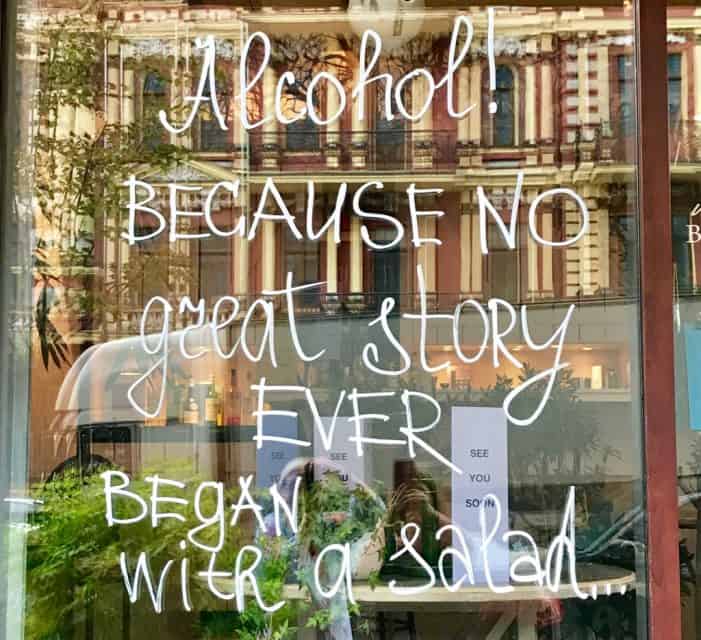 Alcohol!
BECAUSE NO
great story
EVER
BEgAN
witR a salad...
SEE
YOU
SOON
SEE
SEE
B